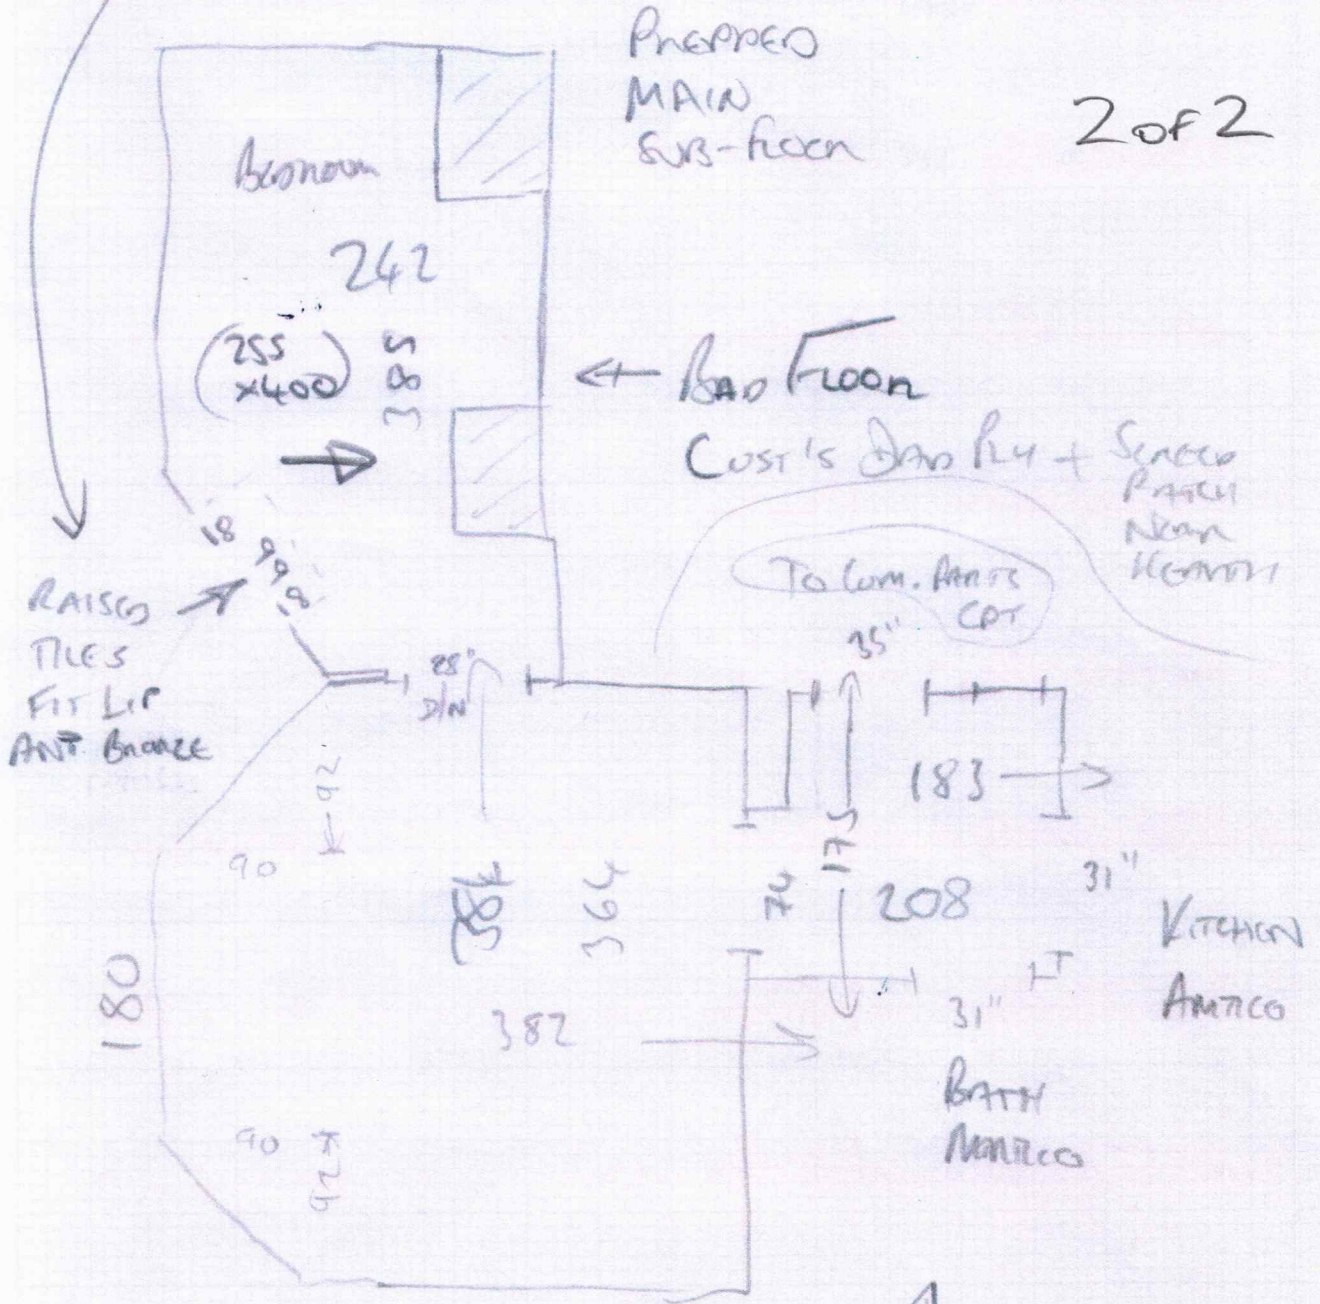 PREPPED
MAIN
SUB-FLOOR
2 of 2
Bedroom
242
(255
x400)
385
← BAD FLOOR
CUST'S DAD PLY + SCREED
PATCH
NEAR
HEARTH
To Com. PARTS
CPT
18
99
18
RAISED
TILES
FIT LIP
ANT BRONZE
28"
D/N
35"
183
92
90
364
74
175
208
31"
KITCHEN
AMTICO
180
382
31"
BATH
90
92